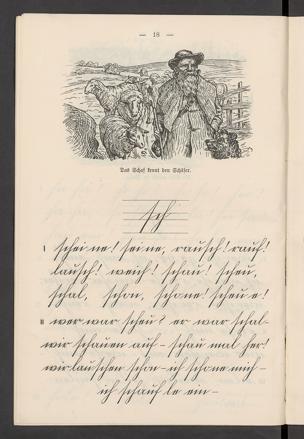 — 18 —
Das Schaf kennt den Schäfer.
sch
I scheine! seine, rausch! rauf!
lausch! weich! schau! scheu,
schal, schon, schone! scheue!
II wer war scheu? er war schal-
wir schauen auf - schau mal her!
wir lauschen schon - ich schone mich -
ich schaufle ein -